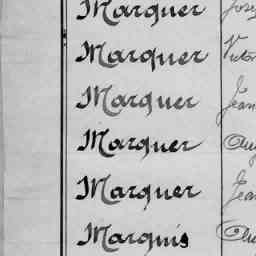 Marquer
Marquer
Marquer Jean
Marquer
Marquer
Marquis